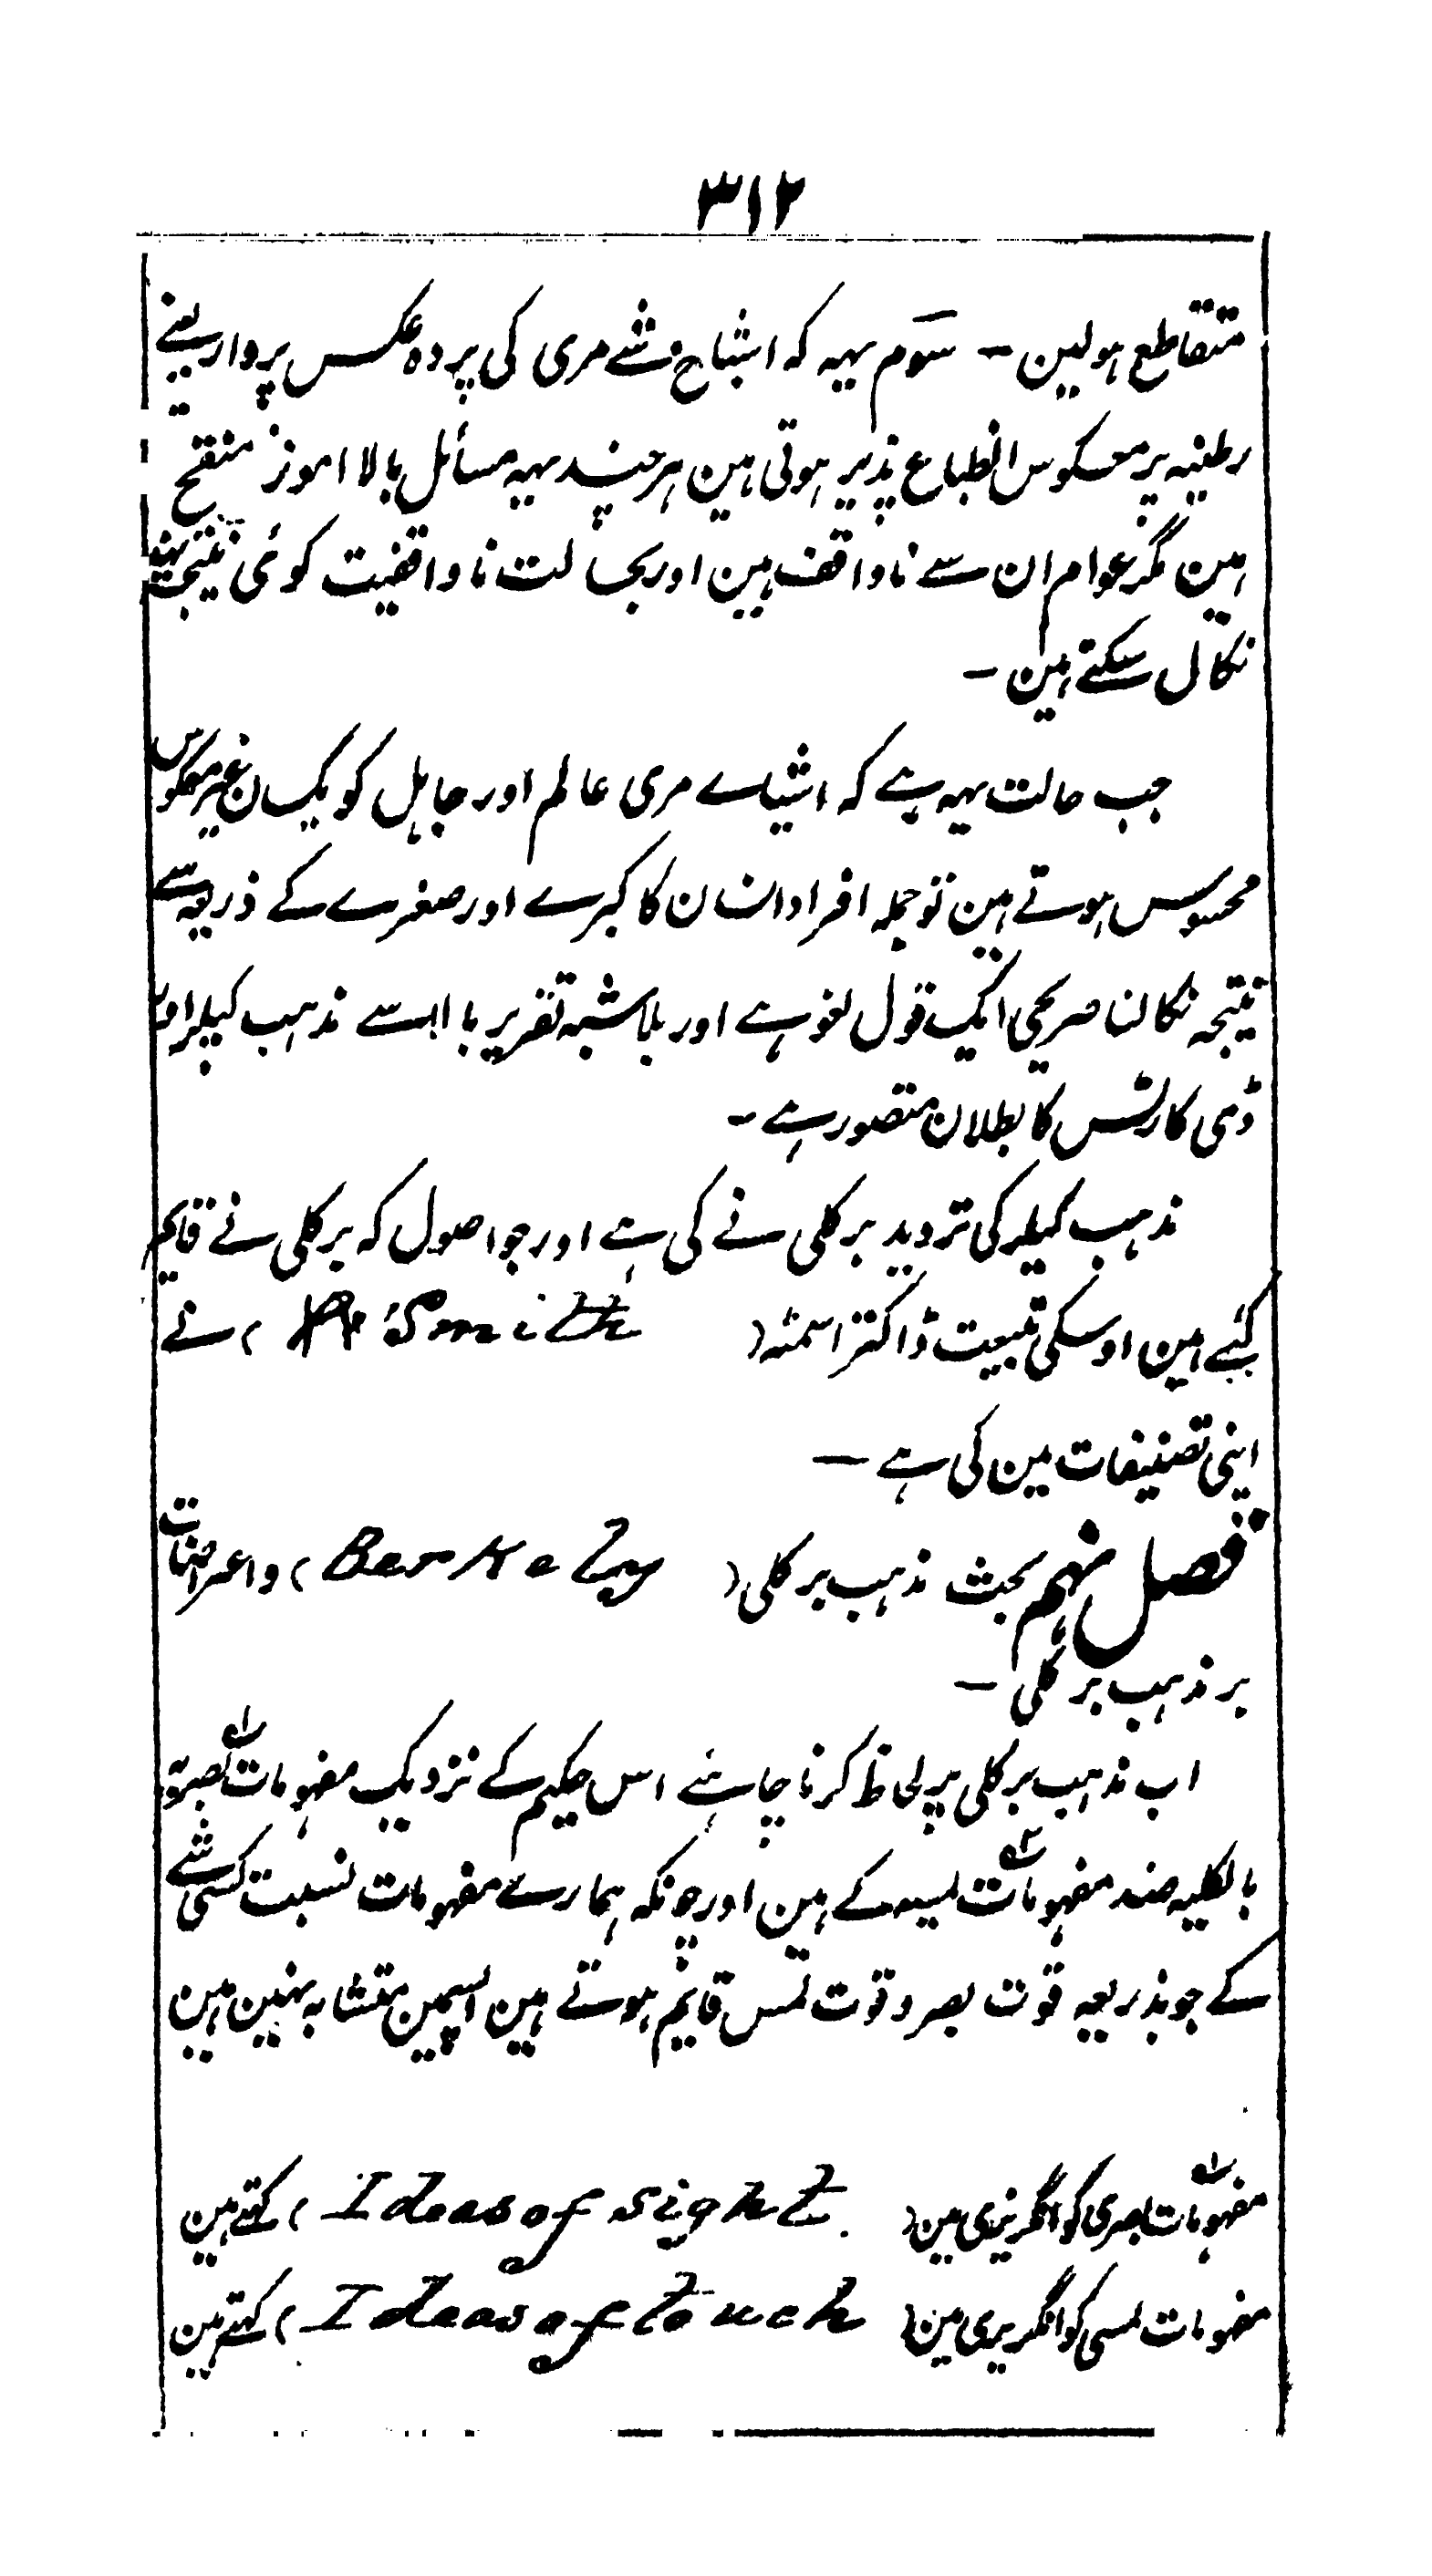 ۳۱۲
متقاطع ہولین - سوم یہہ کہ اشباح شے مری کی پردہ عکس پر وار یعنے
رطنیہ پر معکوس انطباع پذیر ہوتی ہین ہر چند یہہ مسائل بالا اموز منقح
ہین مگر عوام ان سے ناواقف ہین اور بحالت ناواقفیت کوئی نتیجہ نہین
نکال سکتے ہین -
جب حالت یہہ ہے کہ اشیاے مری عالم اور جاہل کو یکسان غیر معکوس
محسوس ہوتے ہین تو جملہ افراد انسان کا کبرے اور صغرے کے ذریعہ سے
نتیجہ نکالنا صریحی ایک قول لغو ہے اور بلاشبہ تقریر بالا سے مذہب کیپلر اور
ڈی کارٹس کا بطلان متصور ہے -
مذہب کیپلر کی تردید برکلی نے کی ہے اور جو اصول کہ برکلی نے قایم
کئے ہین اوسکی تبعیت ڈاکٹر اسمتہ ( Smith ) نے
اپنی تصنیفات مین کی ہے -
فصل نہم بحث مذہب برکلی ( Berkely ) و اعتراضات
بر مذہب برکلی -
اب مذہب برکلی پر لحاظ کرنا چاہئے اس حکیم کے نزدیک مفہومات۱ بصریہ
بالکلیہ ضد مفہومات۲ لمسیہ کے ہین اور چونکہ ہمارے مفہومات نسبت کسی شے
کے جو بذریعہ قوت بصر و قوت لمس قایم ہوتے ہین اسمین متشابہ نہین ہین
۱ مفہومات بصری کو انگریزی مین ( Ideas of sight ) کہتے ہین
مفہومات لمسی کو انگریزی مین ( Ideas of touch ) کہتے ہین